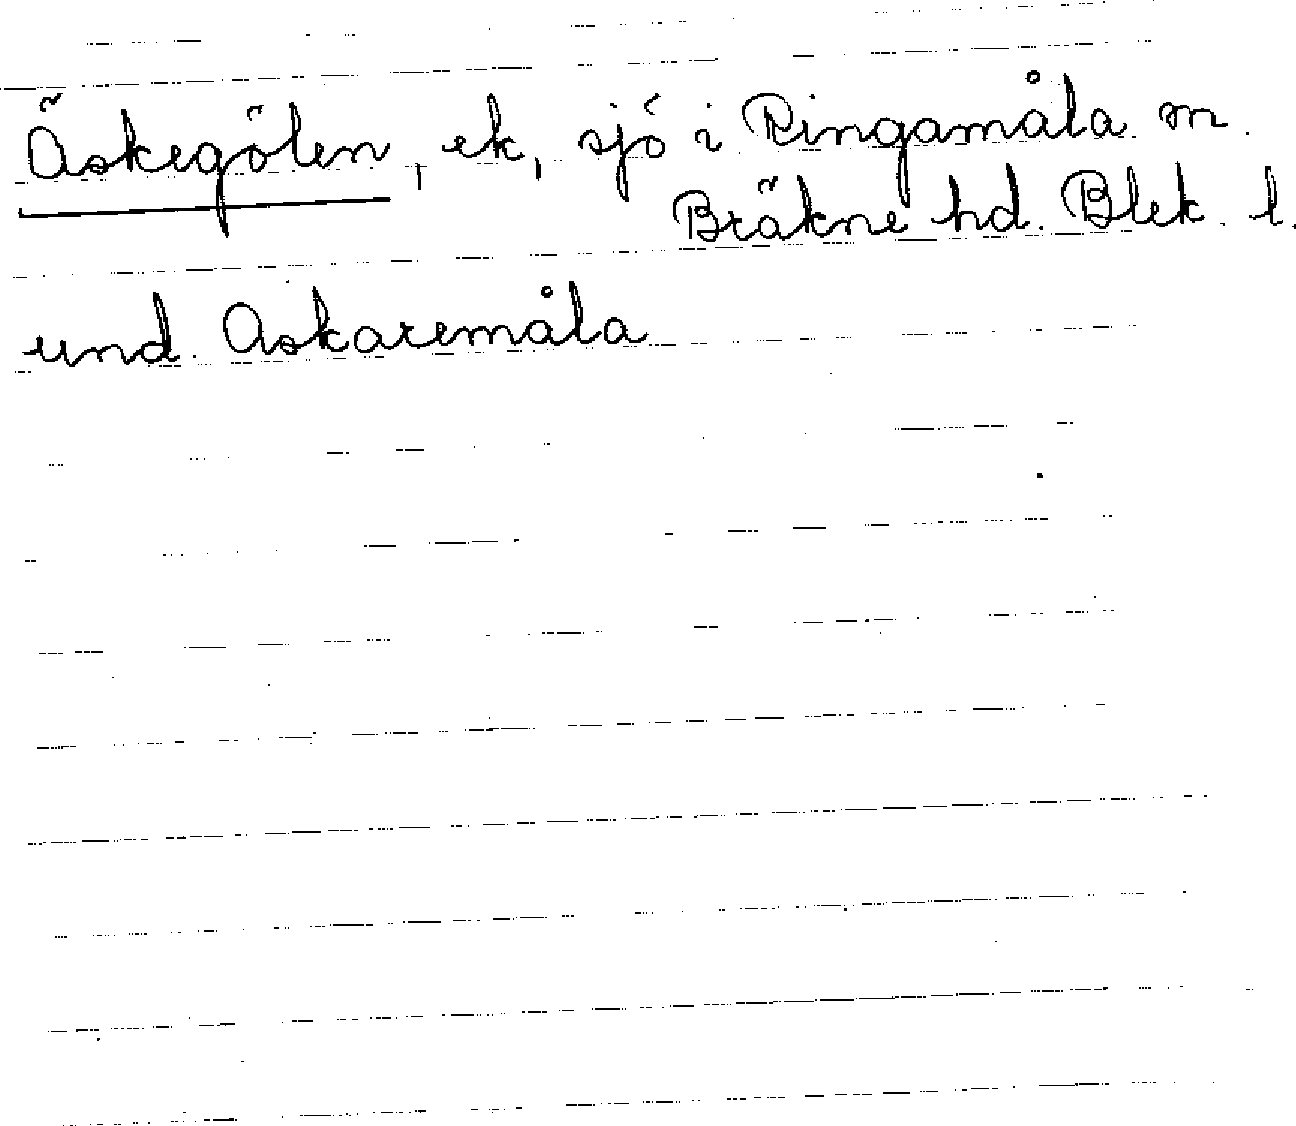 Äskegölen, ek, sjö i Ringamåla m.
Bräkne hd. Blek. l.
und. Askaremåla